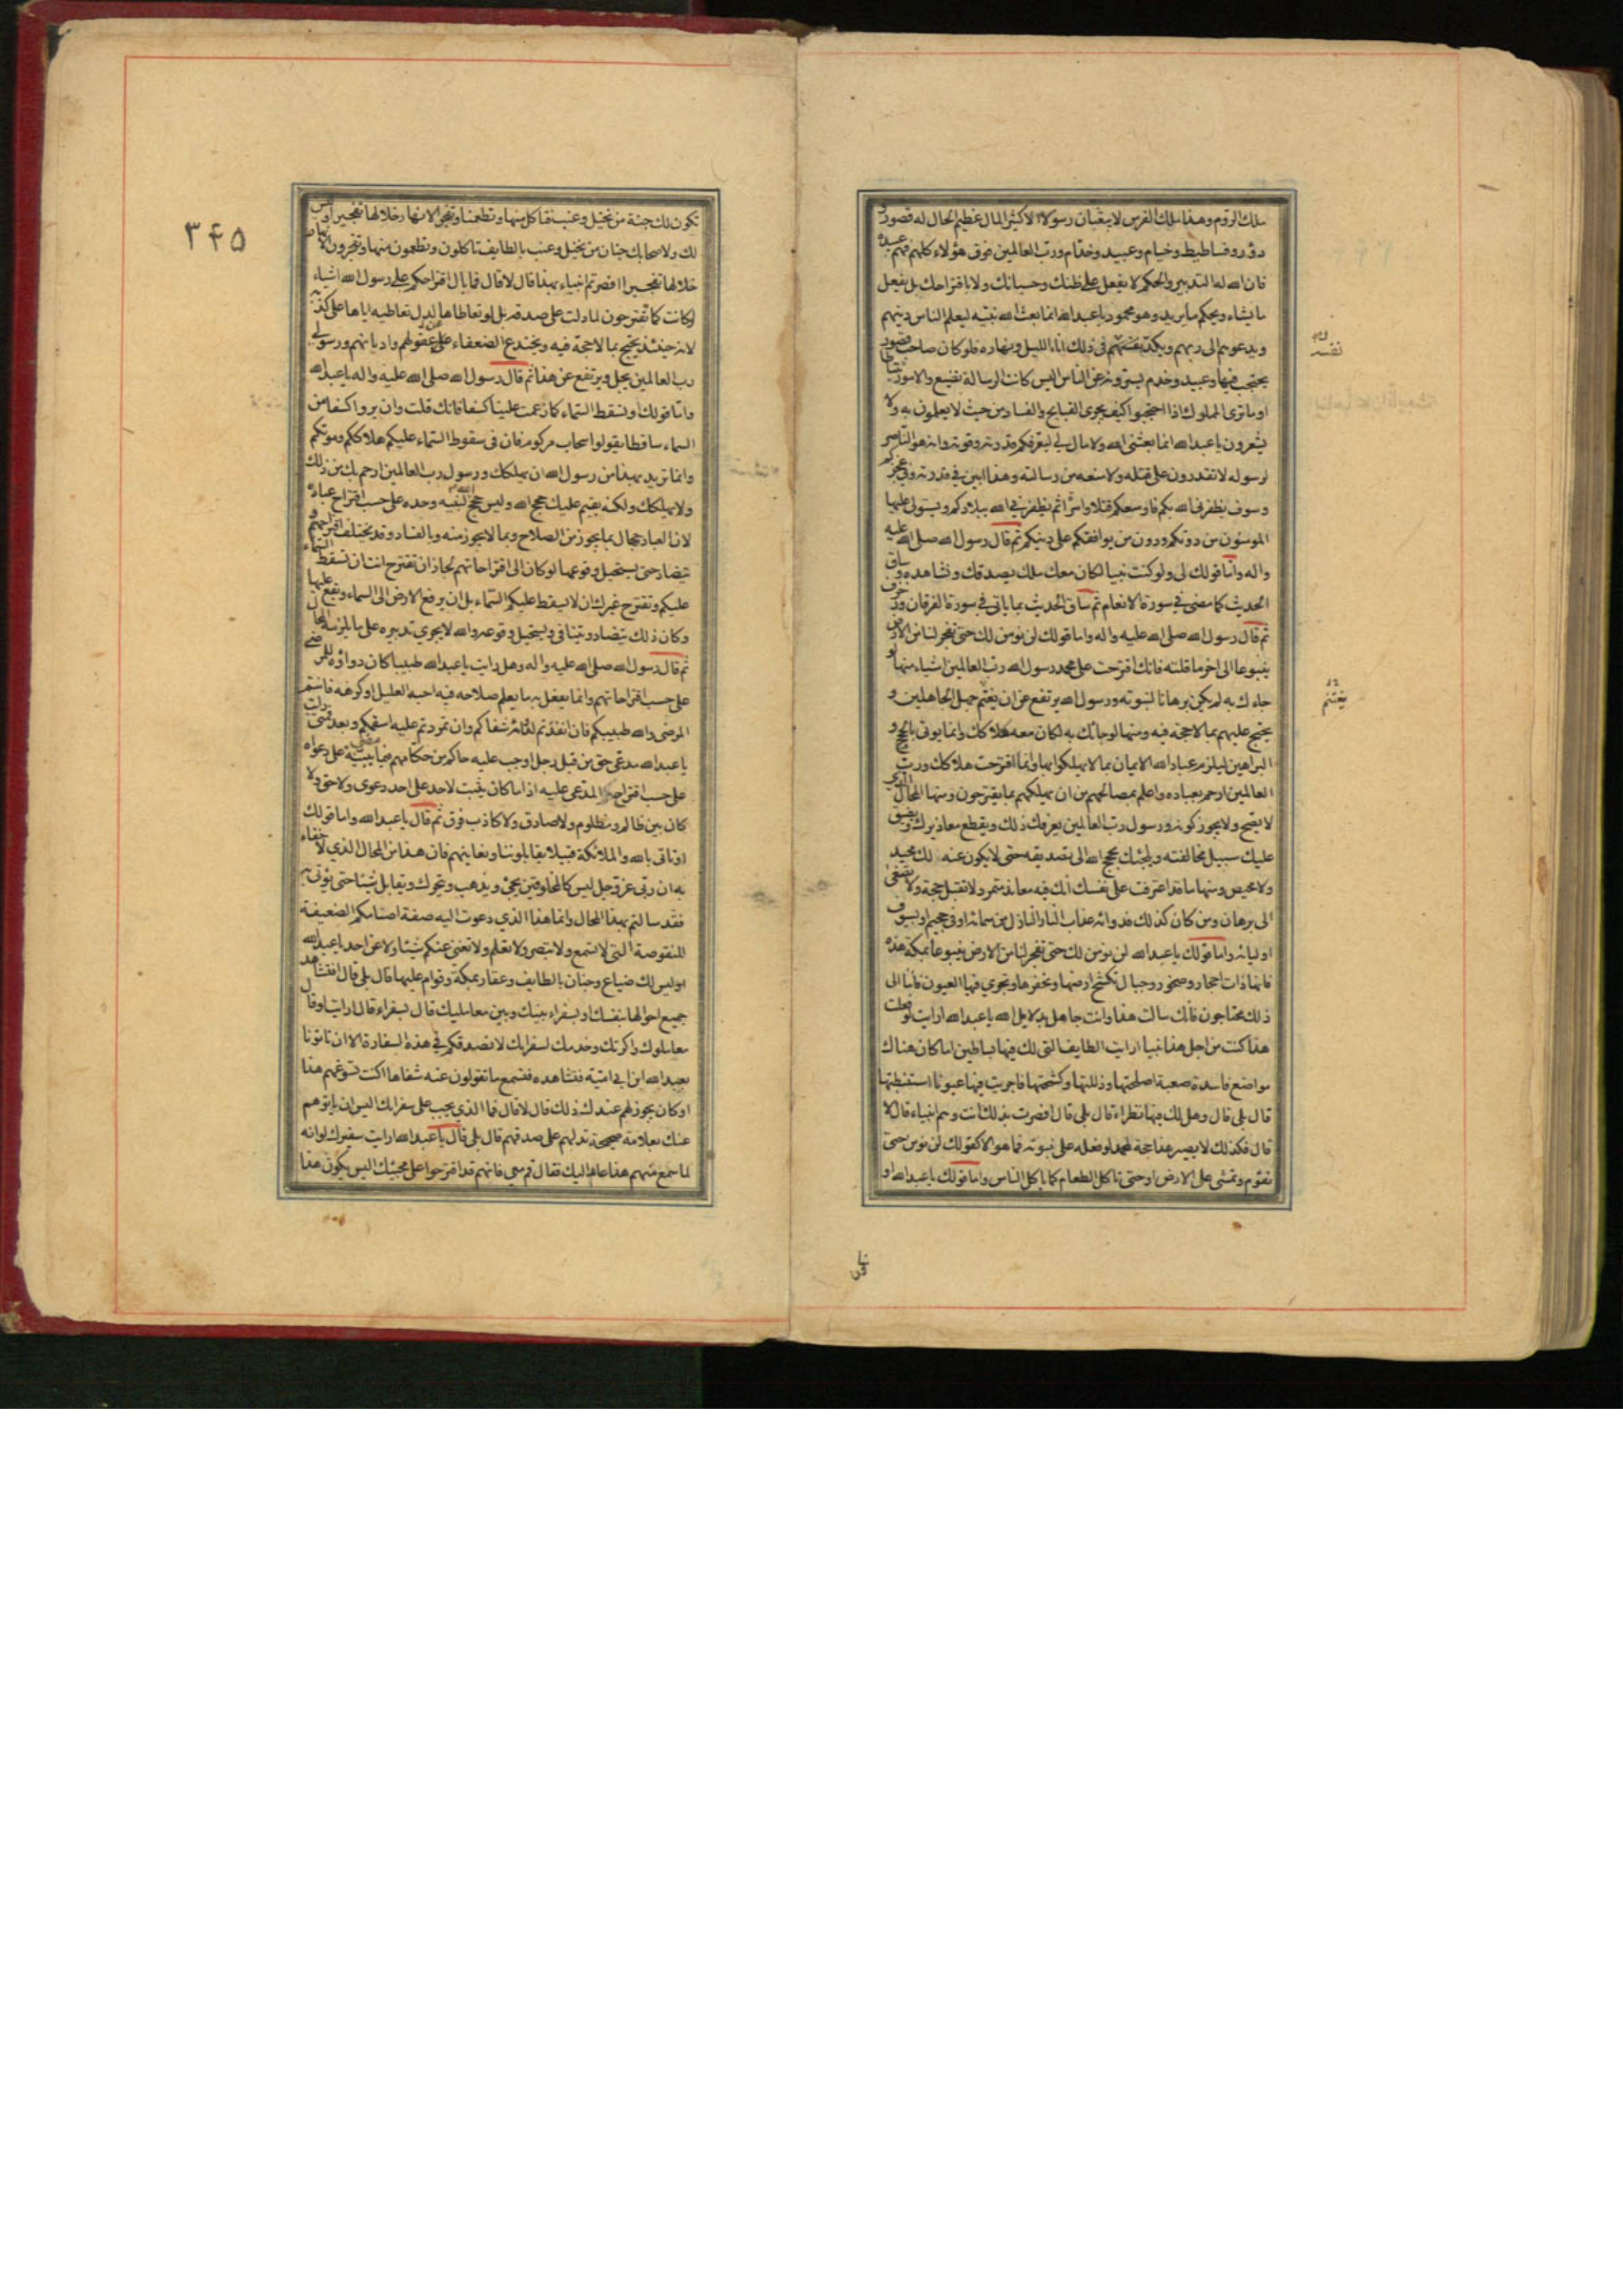 ملك الروم وهذا ملك الفرس لا يبعثان رسولا الا كثير المال عظيم الحال له قصور و
دور وفساطيط وخيام وعبيد وخدام ورب العالمين فوق هؤلاء كلهم فهم عبيده
فان الله له التدبير والحكم لا يفعل على ظنك وحسبانك ولا باقتراحك بل يفعل
ما يشاء ويحكم ما يريد وهو محمود يا عبد الله انما بعث الله نبيه ليعلم الناس دينهم
ويدعوهم الى ربهم ويكد نفسه في ذلك اناء الليل ونهاره فلو كان صاحب قصور
يحتجب فيها وعبيد وخدم يسترونه عن الناس اليس كانت الرسالة تضيع والامور تتباطأ
او ما ترى الملوك اذا احتجبوا كيف يجرى القبايح والفساد من حيث لا يعلمون به ولا
يشعرون يا عبد الله انما بعثنى الله ولا مال لي ليعرفكم قدرته وقوته وانه هو الناصر
لرسوله لا تقدرون على قتله ولا منعه من رسالته وهذا ابين في قدرته وفي عجزكم
وسوف يظفرنى الله بكم فاوسعكم قتلا واسرا ثم يظفرني الله ببلادكم ويستولى عليها
المومنون من دونكم ودون من يوافقكم على دينكم ثم قال رسول الله صلى الله عليه
واله واما قولك لى ولو كنت نبيا لكان معك ملك يصدقك ونشاهده وساق
الحديث كما مضى في سورة الانعام ثم ساق الحديث بما ياتى في سورة الفرقان
ثم قال رسول الله صلى الله عليه واله واما قولك لن نومن لك حتى تفجر لنا من الارض
ينبوعا الى اخر ما قلته فانك اقترحت على محمد رسول الله رب العالمين اشياء منها لو
جاءك به لم يكن برهانا لنبوته ورسول الله يرتفع عن ان يغتنم جهل الجاهلين و
يحتج عليهم بما لا حجة فيه ومنها لو جائك به لكان معه هلاكك وانما يوتى بالحجج و
البراهين ليلزم عباد الله الايمان بها لا ليهلكوا بها وانما اقترحت هلاكك ورب
العالمين ارحم بعباده واعلم بمصالحهم من ان يهلكهم بما يقترحون ومنها المحال الذي
لا يصح ولا يجوز كونه ورسول رب العالمين يعرفك ذلك ويقطع معاذيرك ويضيق
عليك سبيل مخالفته ويلجئك بحجج الله الى تصديقه حتى لا يكون عنه لك محيد
ولا محيص ومنها ما قد اعترفت على نفسك انك فيه معاند متمرد لا تقبل حجة ولا تصغى
الى برهان ومن كان كذلك فدوائه عذاب النار النازل من سمائه او في جحيمه او بسيوف
اوليائه واما قولك يا عبد الله لن نومن لك حتى تفجر لنا من الارض ينبوعا بمكة هذه
فانها ذات احجار وصخور وجبال تكسح ارضها وتحفرها وتجري فيها العيون فاننا الى
ذلك محتاجون فانك سالت هذا وانت جاهل بدلايل الله يا عبد الله ارايت لو فعلت
هذا كنت من اجل هذا نبيا ارايت الطايف التى لك فيها بساطين اما كان هناك
مواضع فاسدة صعبة اصلحتها وذللتها وكسحتها فاجريت فيها عيونا استنبطتها
قال بلى قال وهل لك فيها نظراء قال بلى قال افصرت بذلك انت وهم انبياء قال لا
قال فكذلك لا يصير هذا حجة لمحمد لو فعله على نبوته فما هو الا كقولك لن نومن حتى
تقوم وتمشى على الارض او حتى تاكل الطعام كما ياكل الناس واما قولك يا عبد الله او
نفسه
يغتنم
٣٤٥
تكون لك جنة من نخيل وعنب فتاكل منها وتطعمنا وتفجر الانهار خلالها تفجيرا اوليس
لك ولاصحابك جنان من نخيل وعنب بالطايف تاكلون وتطعمون منها وتفجرون الانهار
خلالها تفجيرا افصرتم انبياء بهذا قال لا قال فما بال اقتراحكم على رسول الله اشياء
لو كانت كما تقترحون لما دلت على صدقه بل لو تعاطاها لدل تعاطيه اياها على كذبه
لانه حينئذ يحتج بما لا حجة فيه ويختدع الضعفاء عن عقولهم واديانهم ورسول
رب العالمين يجل ويرتفع عن هذا ثم قال رسول الله صلى الله عليه واله يا عبد الله
واما قولك او تسقط السماء كما زعمت علينا كسفا فانك قلت وان يروا كسفا من
السماء ساقطا يقولوا سحاب مركوم فان في سقوط السماء عليكم هلاككم وموتكم
وانما تريد بهذا من رسول الله ان يهلكك ورسول رب العالمين ارحم بك من ذلك
ولا يهلكك ولكنه يقيم عليك حجج الله وليس حجج الله لنبيه وحده على حسب اقتراح عباده
لان العباد جهال بما يجوز من الصلاح وبما لا يجوز منه وبالفساد وقد يختلف اقتراحهم و
يتضاد حتى يستحيل وقوعها لو كان الى اقتراحاتهم لجاز ان تقترح انت ان تسقط السماء
عليكم ويقترح غيرك ان لا يسقط عليكم السماء بل ان يرفع الارض الى السماء ويقع عليها
وكان ذلك يتضاد ويتنافى ويستحيل وقوعه والله لا يجري تدبيره على ما يلزمه المحال
ثم قال رسول الله صلى الله عليه واله وهل رايت يا عبد الله طبيبا كان دواؤه للمرضى
على حسب اقتراحاتهم وانما يفعل به ما يعلم صلاحه فيه احبه العليل او كرهه فانتم
المرضى والله طبيبكم فان انفذتم لدوائه شفاكم وان تمردتم عليه اسقمكم وبعد فمتى رايت
يا عبد الله مدعى حق من قبل رجل اوجب عليه حاكم من حكامهم فيما مضى بينة على دعواه
على حسب اقتراح المدعى عليه اذا ما كان يثبت لاحد على احد دعوى ولا حق ولا
كان بين ظالم ومظلوم ولا صادق ولا كاذب فرق ثم قال يا عبد الله واما قولك
او تاتى بالله والملائكة قبيلا يقابلوننا ونعاينهم فان هذا من المحال الذي لا خفاء
به ان ربى عز وجل ليس كالمخلوقين يجئ ويذهب ويتحرك ويقابل شيئا حتى يؤتى به
فقد سالتم بهذا المحال وانما هذا الذي دعوت اليه صفة اصنامكم الضعيفة
المنقوصة التى لا تسمع ولا تبصر ولا تعلم ولا تغنى عنكم شيئا ولا عن احد يا عبد الله
اوليس لك ضياع وجنان بالطايف وعقار بمكة وقوام عليها قال بلى قال افتشاهد
جميع احوالها بنفسك او بسفراء بينك وبين معامليك قال بسفراء قال ارايت لو قال
معاملوك واكرتك وخدمك لسفرائك لا نصدقكم في هذه السفارة الا ان تاتونا
بعبد الله ابن ابي امية فنشاهده فنسمع ما تقولون عنه شفاها اكنت تسوغهم هذا
او كان يجوز لهم عندك ذلك قال لا قال فما الذي يجب على سفرائك اليس ان ياتوهم
عنك بعلامة صحيحة تدلهم على صدقهم قال بلى قال يا عبد الله ارايت سفيرك لو انه
لما سمع منهم هذا عاد اليك فقال قم معي فانهم قد اقترحوا على مجيئك اليس يكون هذا